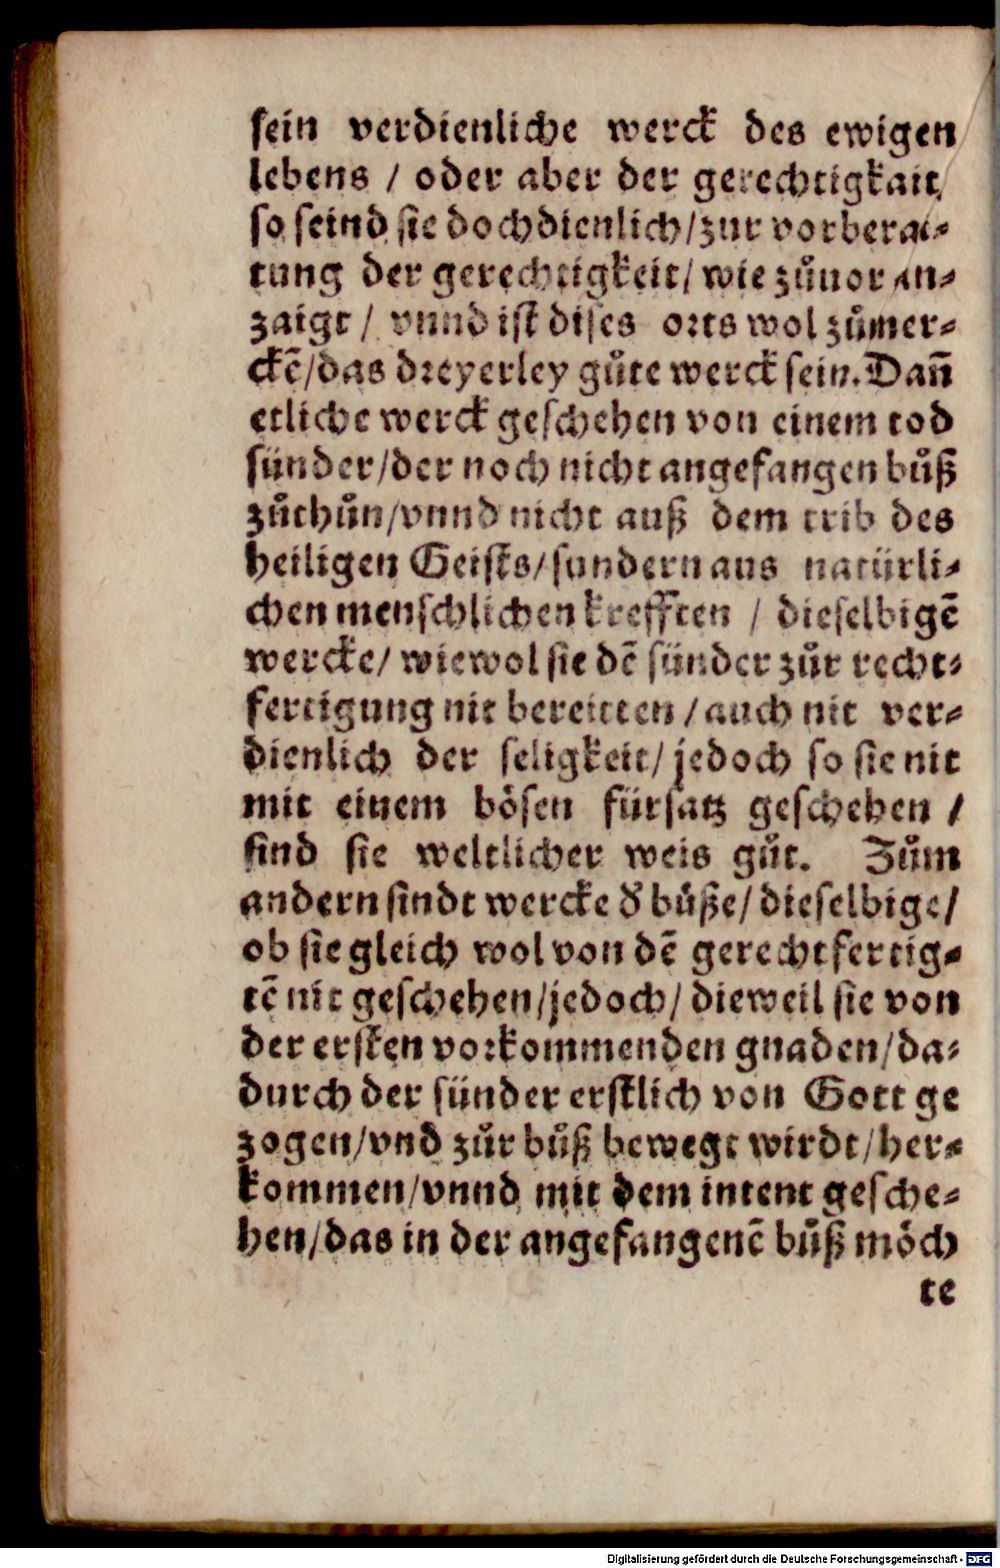 sein verdienliche werck des ewigen
lebens / oder aber der gerechtigkait
so seind sie doch dienlich/zur vorberai-
tung der gerechtigkeit/ wie zůuor an-
zaigt / vnnd ist dises orts wol zůmer-
ckē/das dreyerley gůte werck sein. Dañ
etliche werck geschehen von einem tod
sünder/der noch nicht angefangen bůß
zůthůn/vnnd nicht auß dem trib des
heiligen Geists/sundern aus natürli-
chen menschlichen krefften / dieselbigē
wercke/ wiewol sie dē sünder zůr recht-
fertigung nit bereitten / auch nit ver-
dienlich der seligkeit/ jedoch so sie nit
mit einem bösen fürsatz geschehen /
sind sie weltlicher weis gůt. Zům
andern sindt wercke ď bůße/ dieselbige/
ob sie gleich wol von dē gerechtfertig-
tē nit geschehen/jedoch/ dieweil sie von
der ersten vorkommenden gnaden/da-
durch der sünder erstlich von Gott ge
zogen/vnd zůr bůß bewegt wirdt/her-
kommen/vnnd mit dem intent gesche-
hen/das in der angefangenē bůß möch
te
Digitalisierung gefördert durch die Deutsche Forschungsgemeinschaft - DFG